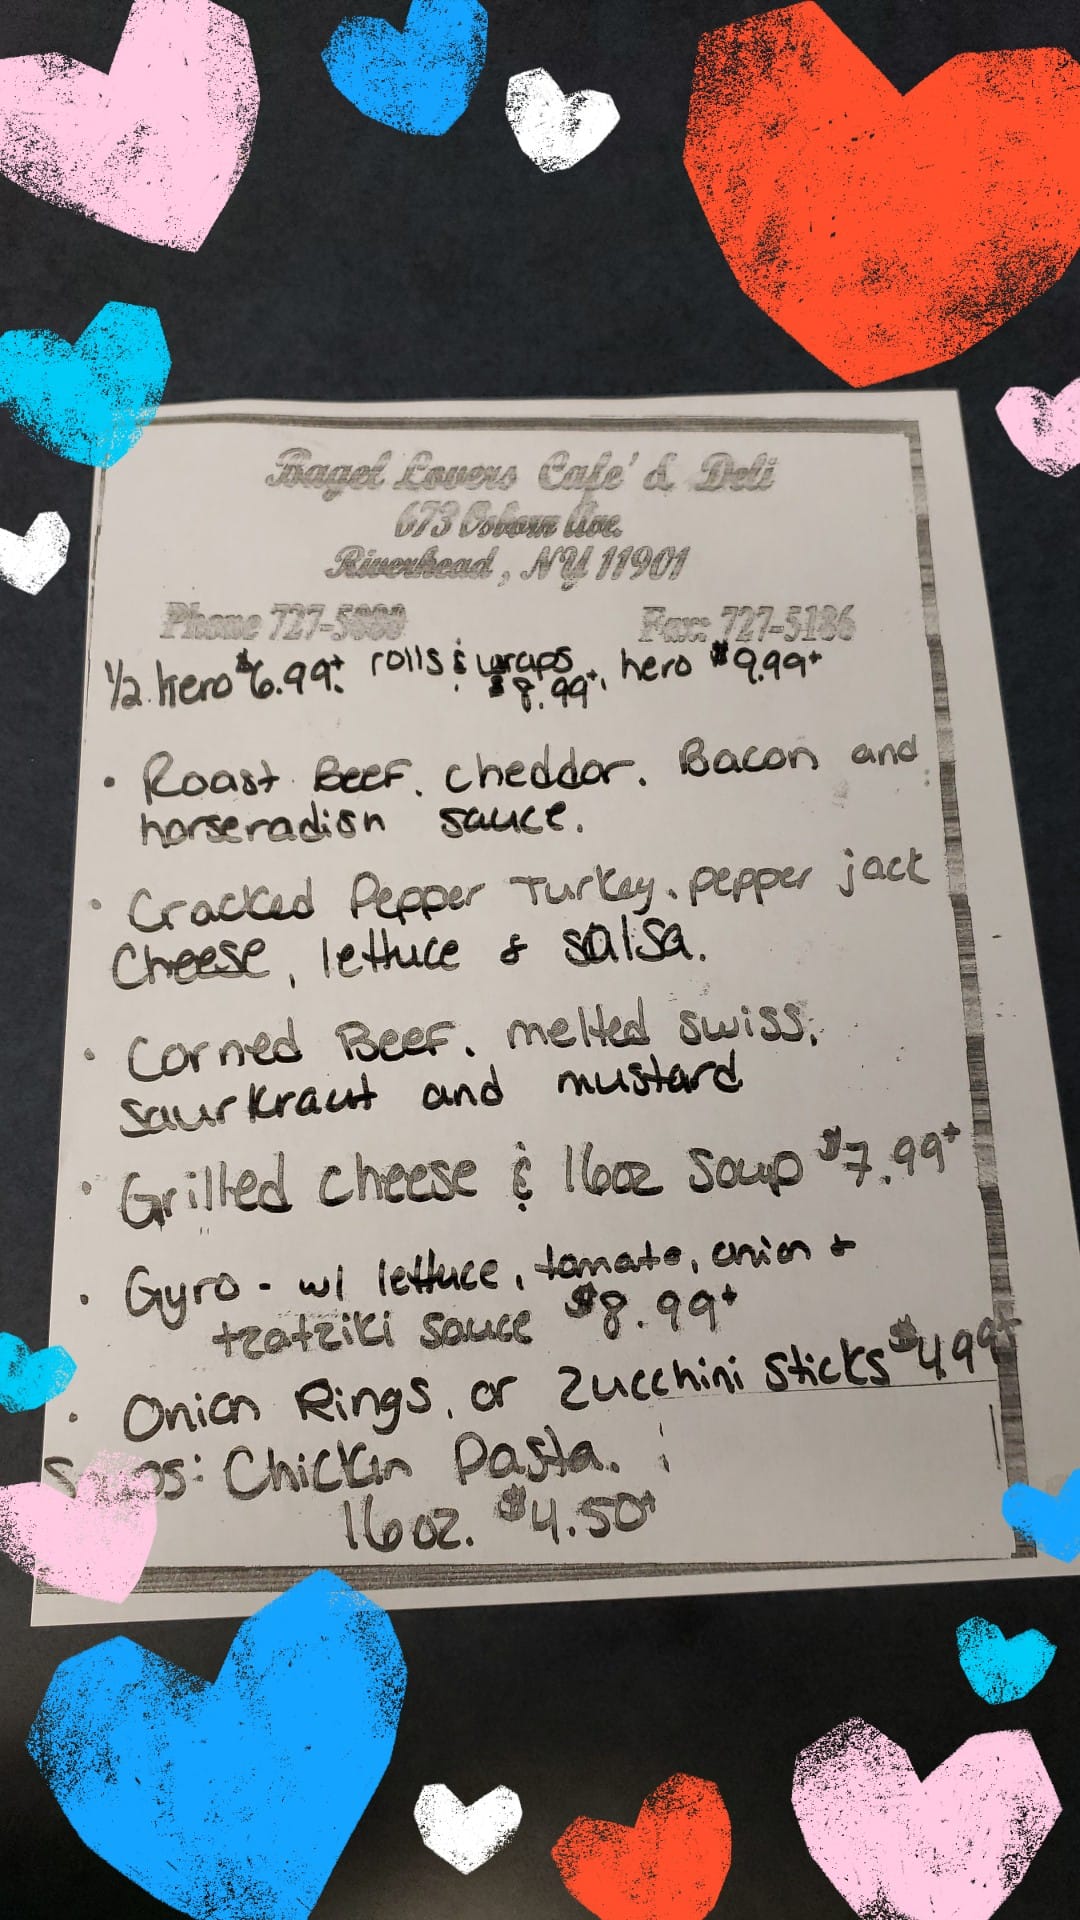 Bagel Lovers Cafe' & Deli
673 Osborn Ave.
Riverhead, NY 11901
Phone 727-5080 Fax: 727-5186
1/2 hero $6.99+. rolls & wraps $8.99+, hero $9.99+
• Roast Beef, cheddar, Bacon and
horseradish sauce.
• Cracked Pepper Turkey, pepper jack
Cheese, lettuce & salsa.
• Corned Beef, melted swiss,
saurkraut and mustard
• Grilled cheese & 16oz Soup $7.99+
• Gyro - w/ lettuce, tomato, onion &
tzatziki sauce $8.99+
• Onion Rings, or Zucchini Sticks $4.99+
Soups: Chicken Pasta.
16oz. $4.50+